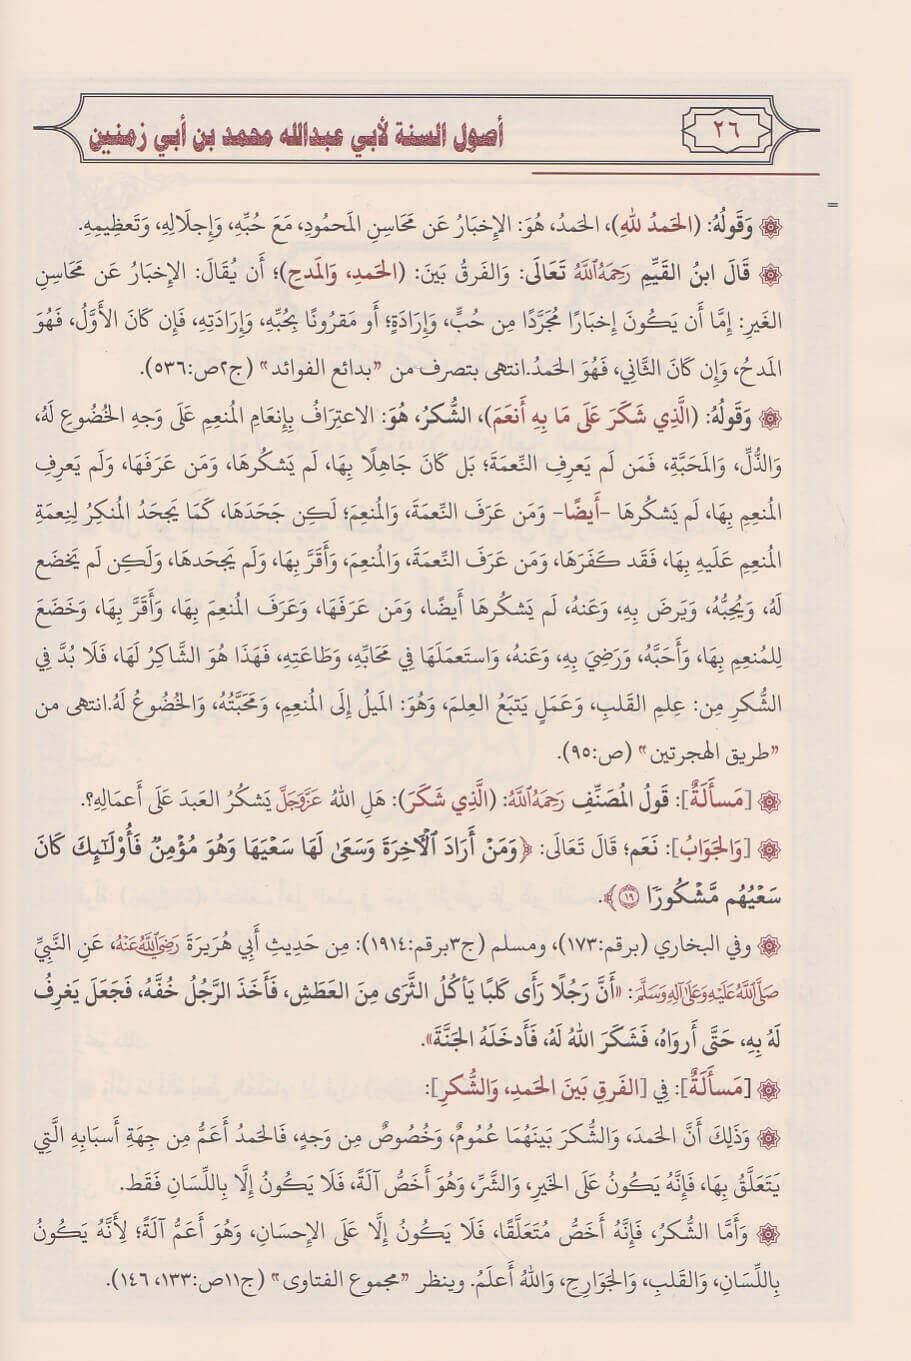 ٢٦
أصول السنة لأبي عبدالله محمد بن أبي زمنين
=
وَقَولُهُ: (الحَمدُ للهِ)، الحَمدُ، هُوَ: الإِخبَارُ عَن مَحَاسِنِ المَحمُودِ، مَعَ حُبِّهِ، وَإِجلَالِهِ، وَتَعظِيمِهِ.
قَالَ ابنُ القَيِّمِ رَحِمَهُ ٱللَّهُ تَعَالَى: وَالفَرقُ بَينَ: (الحَمدِ، وَالمَدحِ)؛ أَن يُقَالَ: الإِخبَارُ عَن مَحَاسِنِ
الغَيرِ: إِمَّا أَن يَكُونَ إِخبَارًا مُجَرَّدًا مِن حُبٍّ، وَإِرَادَةٍ؛ أَو مَقرُونًا بِحُبِّهِ، وَإِرَادَتِهِ، فَإِن كَانَ الأَوَّلُ، فَهُوَ
المَدحُ، وَإِن كَانَ الثَّانِي، فَهُوَ الحَمدُ.انتهى بتصرف من "بدائع الفوائد" (ج٢ص:٥٣٦).
وَقَولُهُ: (الَّذِي شَكَرَ عَلَى مَا بِهِ أَنعَمَ)، الشُّكرُ، هُوَ: الاعتِرَافُ بِإِنعَامِ المُنعِمِ عَلَى وَجهِ الخُضُوعِ لَهُ،
وَالذُّلِّ، وَالمَحَبَّةِ، فَمَن لَم يَعرِفِ النِّعمَةَ؛ بَل كَانَ جَاهِلًا بِهَا، لَم يَشكُرهَا، وَمَن عَرَفَهَا، وَلَم يَعرِفِ
المُنعِمِ بِهَا، لَم يَشكُرهَا -أَيضًا- وَمَن عَرَفَ النِّعمَةَ، وَالمُنعِمَ؛ لَكِن جَحَدَهَا، كَمَا يَجحَدُ المُنكِرُ لِنِعمَةِ
المُنعِمِ عَلَيهِ بِهَا، فَقَد كَفَرَهَا، وَمَن عَرَفَ النِّعمَةَ، وَالمُنعِمَ، وَأَقَرَّ بِهَا، وَلَم يَجحَدهَا، وَلَكِن لَم يَخضَع
لَهُ، وَيُحِبُّهُ، وَيَرضَ بِهِ، وَعَنهُ، لَم يَشكُرهَا أَيضًا، وَمَن عَرَفَهَا، وَعَرَفَ المُنعِمَ بِهَا، وَأَقَرَّ بِهَا، وَخَضَعَ
لِلمُنعِمِ بِهَا، وَأَحَبَّهُ، وَرَضِيَ بِهِ، وَعَنهُ، وَاستَعمَلَهَا فِي مَحَابِّهِ، وَطَاعَتِهِ، فَهَذَا هُوَ الشَّاكِرُ لَهَا، فَلَا بُدَّ فِي
الشُّكرِ مِن: عِلمِ القَلبِ، وَعَمَلٍ يَتبَعُ العِلمَ، وَهُوَ: المَيلُ إِلَى المُنعِمِ، وَمَحَبَّتُهُ، وَالخُضُوعُ لَهُ.انتهى من
"طريق الهجرتين" (ص:٩٥).
[مَسأَلَةٌ]: قَولُ المُصَنِّفِ رَحِمَهُ ٱللَّهُ: (الَّذِي شَكَرَ): هَلِ اللهُ عَزَّوَجَلَّ يَشكُرُ العَبدَ عَلَى أَعمَالِهِ؟.
[وَالجَوَابُ]: نَعَم؛ قَالَ تَعَالَى: ﴿وَمَنْ أَرَادَ ٱلْأٓخِرَةَ وَسَعَىٰ لَهَا سَعْيَهَا وَهُوَ مُؤْمِنٌ فَأُوْلَـٰٓئِكَ كَانَ
سَعْيُهُم مَّشْكُورًا ١٩﴾.
وفي البخاري (برقم:١٧٣)، ومسلم (ج٣برقم:١٩١٤): مِن حَدِيثِ أَبِي هُرَيرَةَ رَضِيَ ٱللَّهُ عَنهُ، عَنِ النَّبِيِّ
صَلَّى ٱللَّهُ عَلَيْهِ وَعَلَى آلِهِ وَسَلَّمَ: «أَنَّ رَجُلًا رَأَى كَلبًا يَأكُلُ الثَّرَى مِنَ العَطَشِ، فَأَخَذَ الرَّجُلُ خُفَّهُ، فَجَعَلَ يَغرِفُ
لَهُ بِهِ، حَتَّى أَروَاهُ، فَشَكَرَ اللهُ لَهُ، فَأَدخَلَهُ الجَنَّةَ».
[مَسأَلَةٌ]: فِي [الفَرقِ بَينَ الحَمدِ، وَالشُّكرِ]:
وَذَلِكَ أَنَّ الحَمدَ، وَالشُّكرَ بَينَهُمَا عُمُومٌ، وَخُصُوصٌ مِن وَجهٍ، فَالحَمدُ أَعَمُّ مِن جِهَةِ أَسبَابِهِ الَّتِي
يَتَعَلَّقُ بِهَا، فَإِنَّهُ يَكُونُ عَلَى الخَيرِ، وَالشَّرِّ، وَهُوَ أَخَصُّ آلَةً، فَلَا يَكُونُ إِلَّا بِاللِّسَانِ فَقَط.
وَأَمَّا الشُّكرُ، فَإِنَّهُ أَخَصُّ مُتَعَلَّقًا، فَلَا يَكُونُ إِلَّا عَلَى الإِحسَانِ، وَهُوَ أَعَمُّ آلَةً؛ لِأَنَّهُ يَكُونُ
بِاللِّسَانِ، وَالقَلبِ، وَالجَوَارِحِ، وَاللهُ أَعلَمُ. وينظر "مجموع الفتاوى" (ج١١ص:١٣٣، ١٤٦).